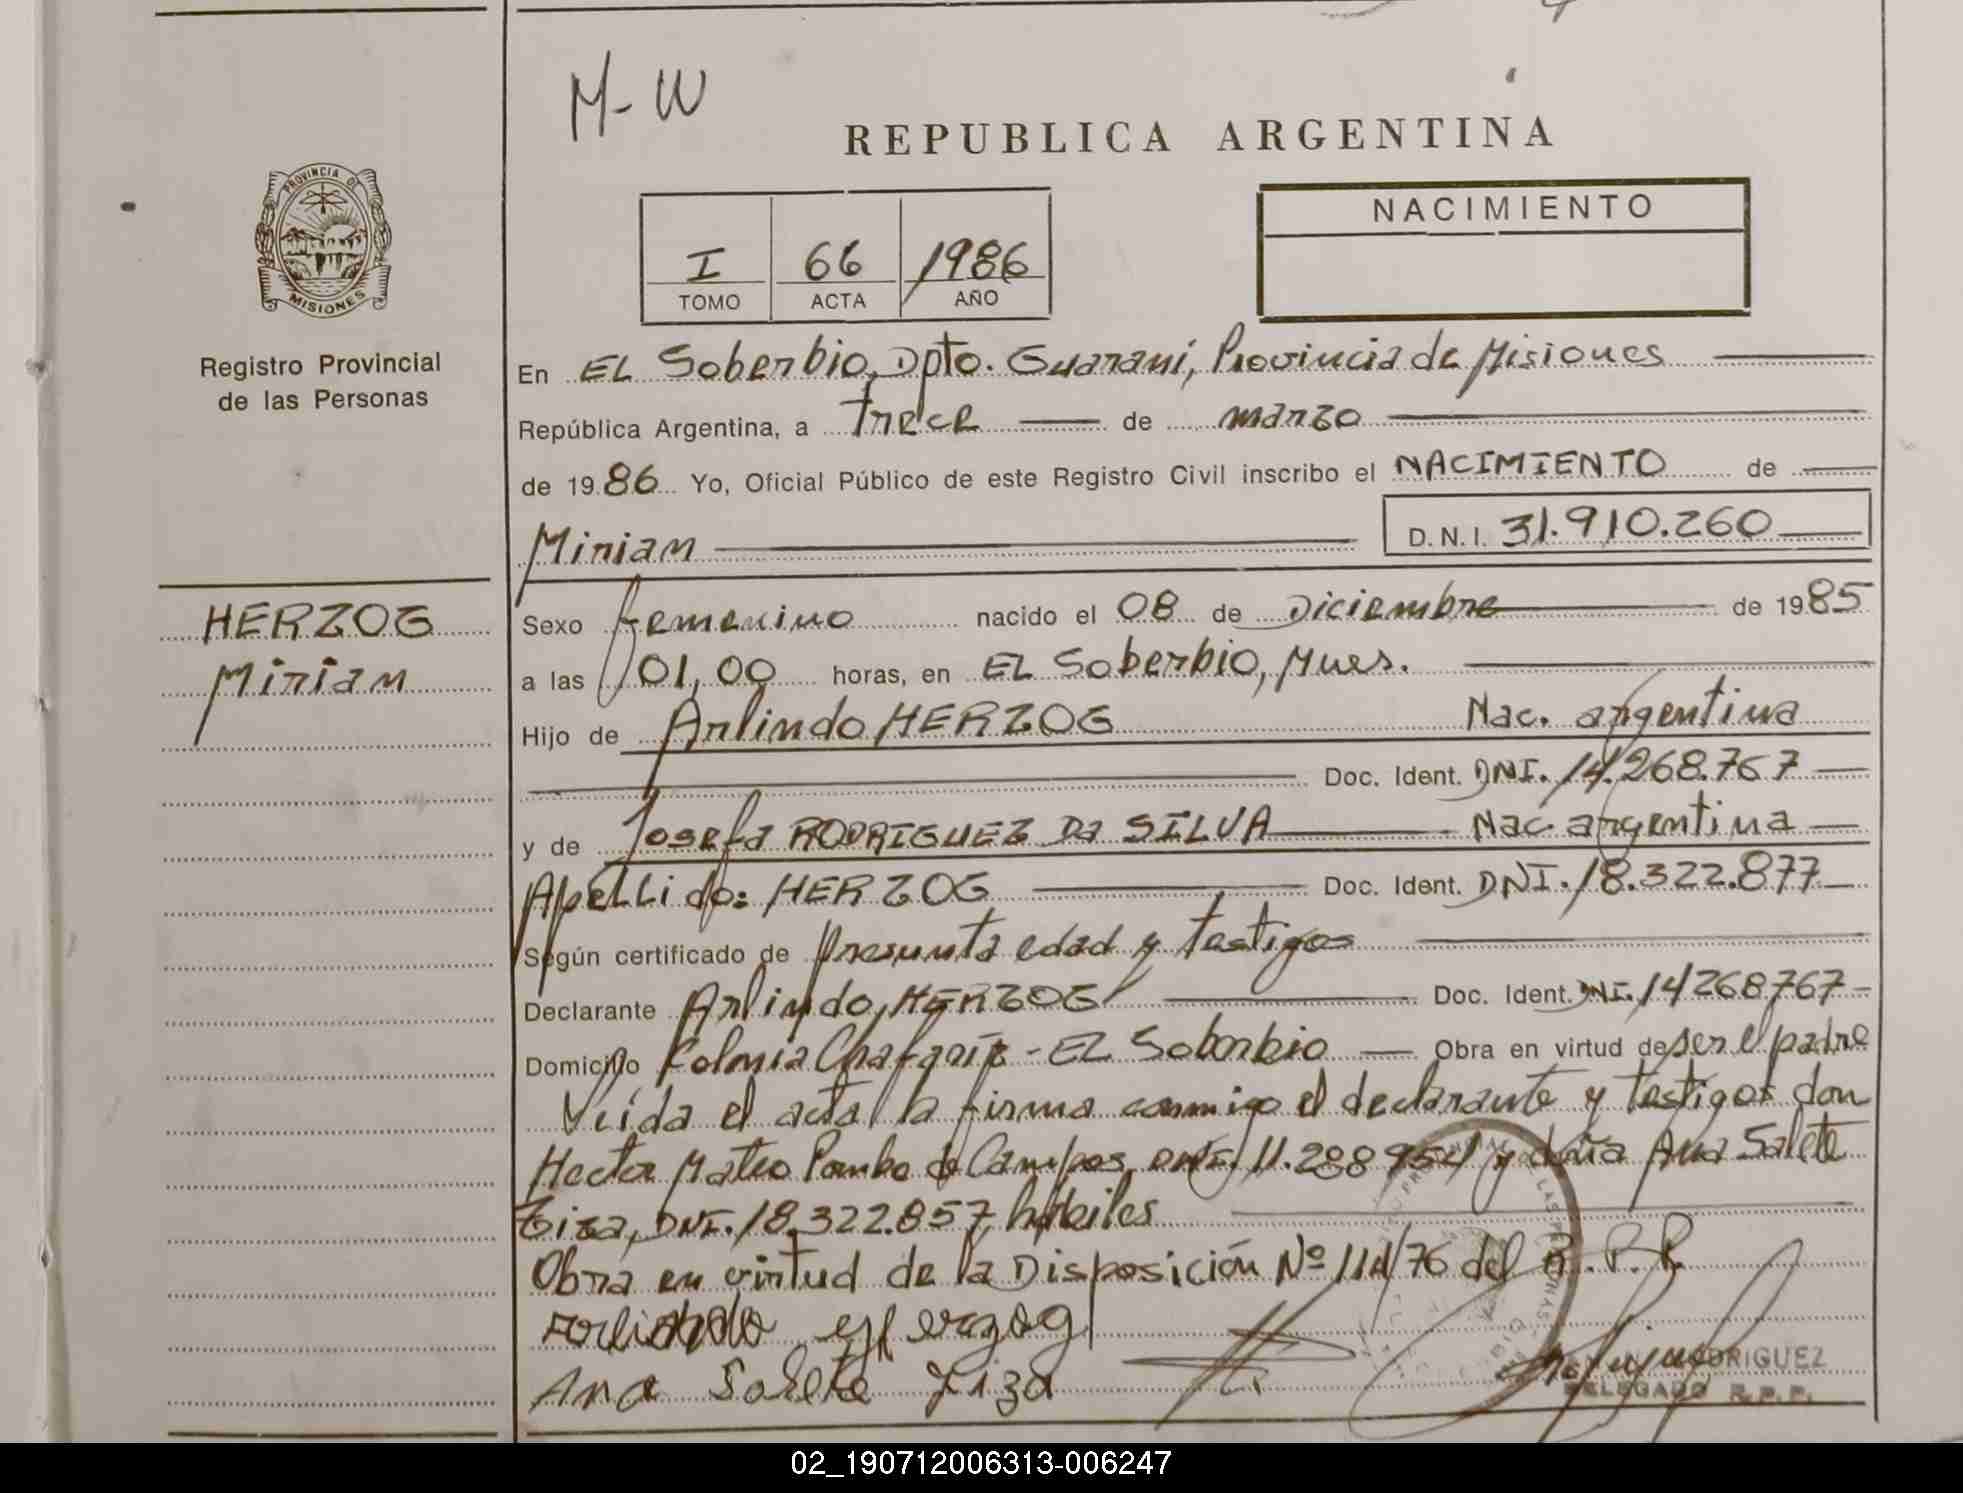 M-W
REPUBLICA ARGENTINA
PROVINCIA DE
MISIONES
Registro Provincial
de las Personas
HERZOG
Miriam
I 66 1986
TOMO ACTA AÑO
NACIMIENTO
En EL Soberbio, Dpto. Guaraní, Provincia de Misiones
República Argentina, a Trece de marzo
de 1986 Yo, Oficial Público de este Registro Civil inscribo el NACIMIENTO de
Miriam D.N.I. 31.910.260
Sexo femenino nacido el 08 de Diciembre de 1985
a las 01,00 horas, en EL Soberbio, Mnes.
Hijo de Arlindo HERZOG Nac. argentina
Doc. Ident. DNI. 14.268.767
y de Josefa RODRIGUEZ Da SILVA Nac argentina
Apellido: HERZOG Doc. Ident. DNI. 18.322.877
Según certificado de presunta edad y testigos
Declarante Arlindo HERZOG Doc. Ident. DNI. 14268767
Domicilio Colonia - EL Soberbio Obra en virtud de ser el padre
Leída el acta la firma conmigo el declarante y testigos don
Hector Mateo de Campos, DNI. 11.288 y doña Ana Salete
Ziza, DNI. 18.322.857, hábiles
Obra en virtud de la Disposición Nº 114/76 del R.P.P.
Ana Salete Ziza
RODRIGUEZ
DELEGADO R.P.P.
02_190712006313-006247